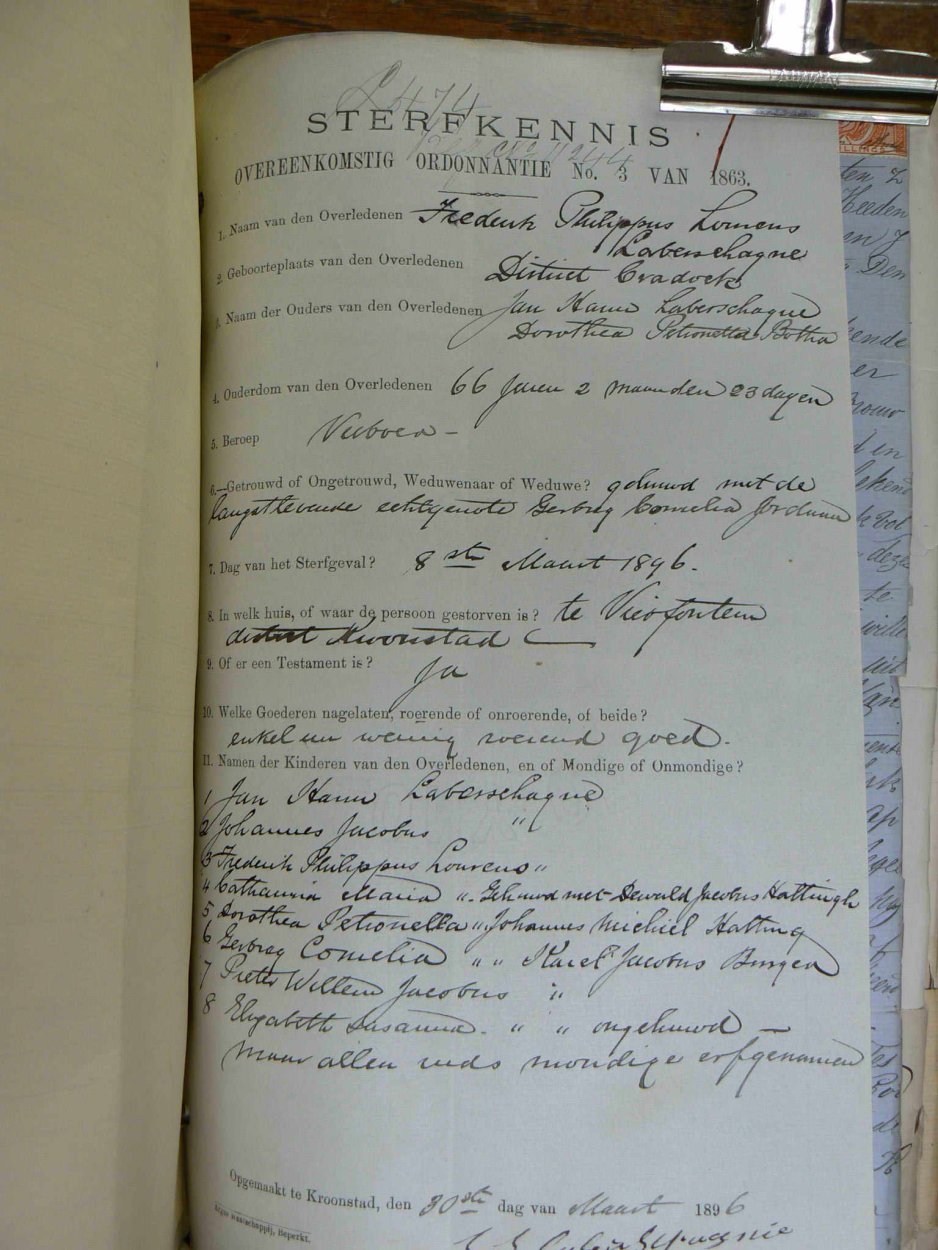 L 474
STERFKENNIS
OVEREENKOMSTIG ORDONNANTIE No. 3 VAN 1863.
1. Naam van den Overledenen Frederik Philippus Lourens
Laberschagne
2. Geboorteplaats van den Overledenen District Cradock
3. Naam der Ouders van den Overledenen Jan Harm Laberschagne
Dorothea Petronella Botha
4. Ouderdom van den Overledenen 66 Jaren 2 maanden 23 dagen
5. Beroep Veeboer —
6.—Getrouwd of Ongetrouwd, Weduwenaar of Weduwe? gehuwd met de
langstlevende echtgenote Gerbreg Cornelia Jordaan
7. Dag van het Sterfgeval? 8ste Maart 1896.
8. In welk huis, of waar de persoon gestorven is? te
district Kroonstad
9. Of er een Testament is? Ja
10. Welke Goederen nagelaten, roerende of onroerende, of beide?
enkel een weinig roerend goed.
11. Namen der Kinderen van den Overledenen, en of Mondige of Onmondige?
1 Jan Harm Laberschagne
2 Johannes Jacobus "
3 Frederik Philippus Lourens "
4 Catharina Maria " Gehuwd met Dewald Jacobus Hattingh
5 Dorothea Petronella " Johannes Michiel Hatting
6 Gerbreg Cornelia " " Karel Jacobus Burger
7 Pieter Willem Jacobus "
8 Elizabeth Susanna " " ongehuwd —
maar allen reds mondige erfgenamen
Opgemaakt te Kroonstad, den 30ste dag van Maart 1896
Maatschappij, Beperkt.